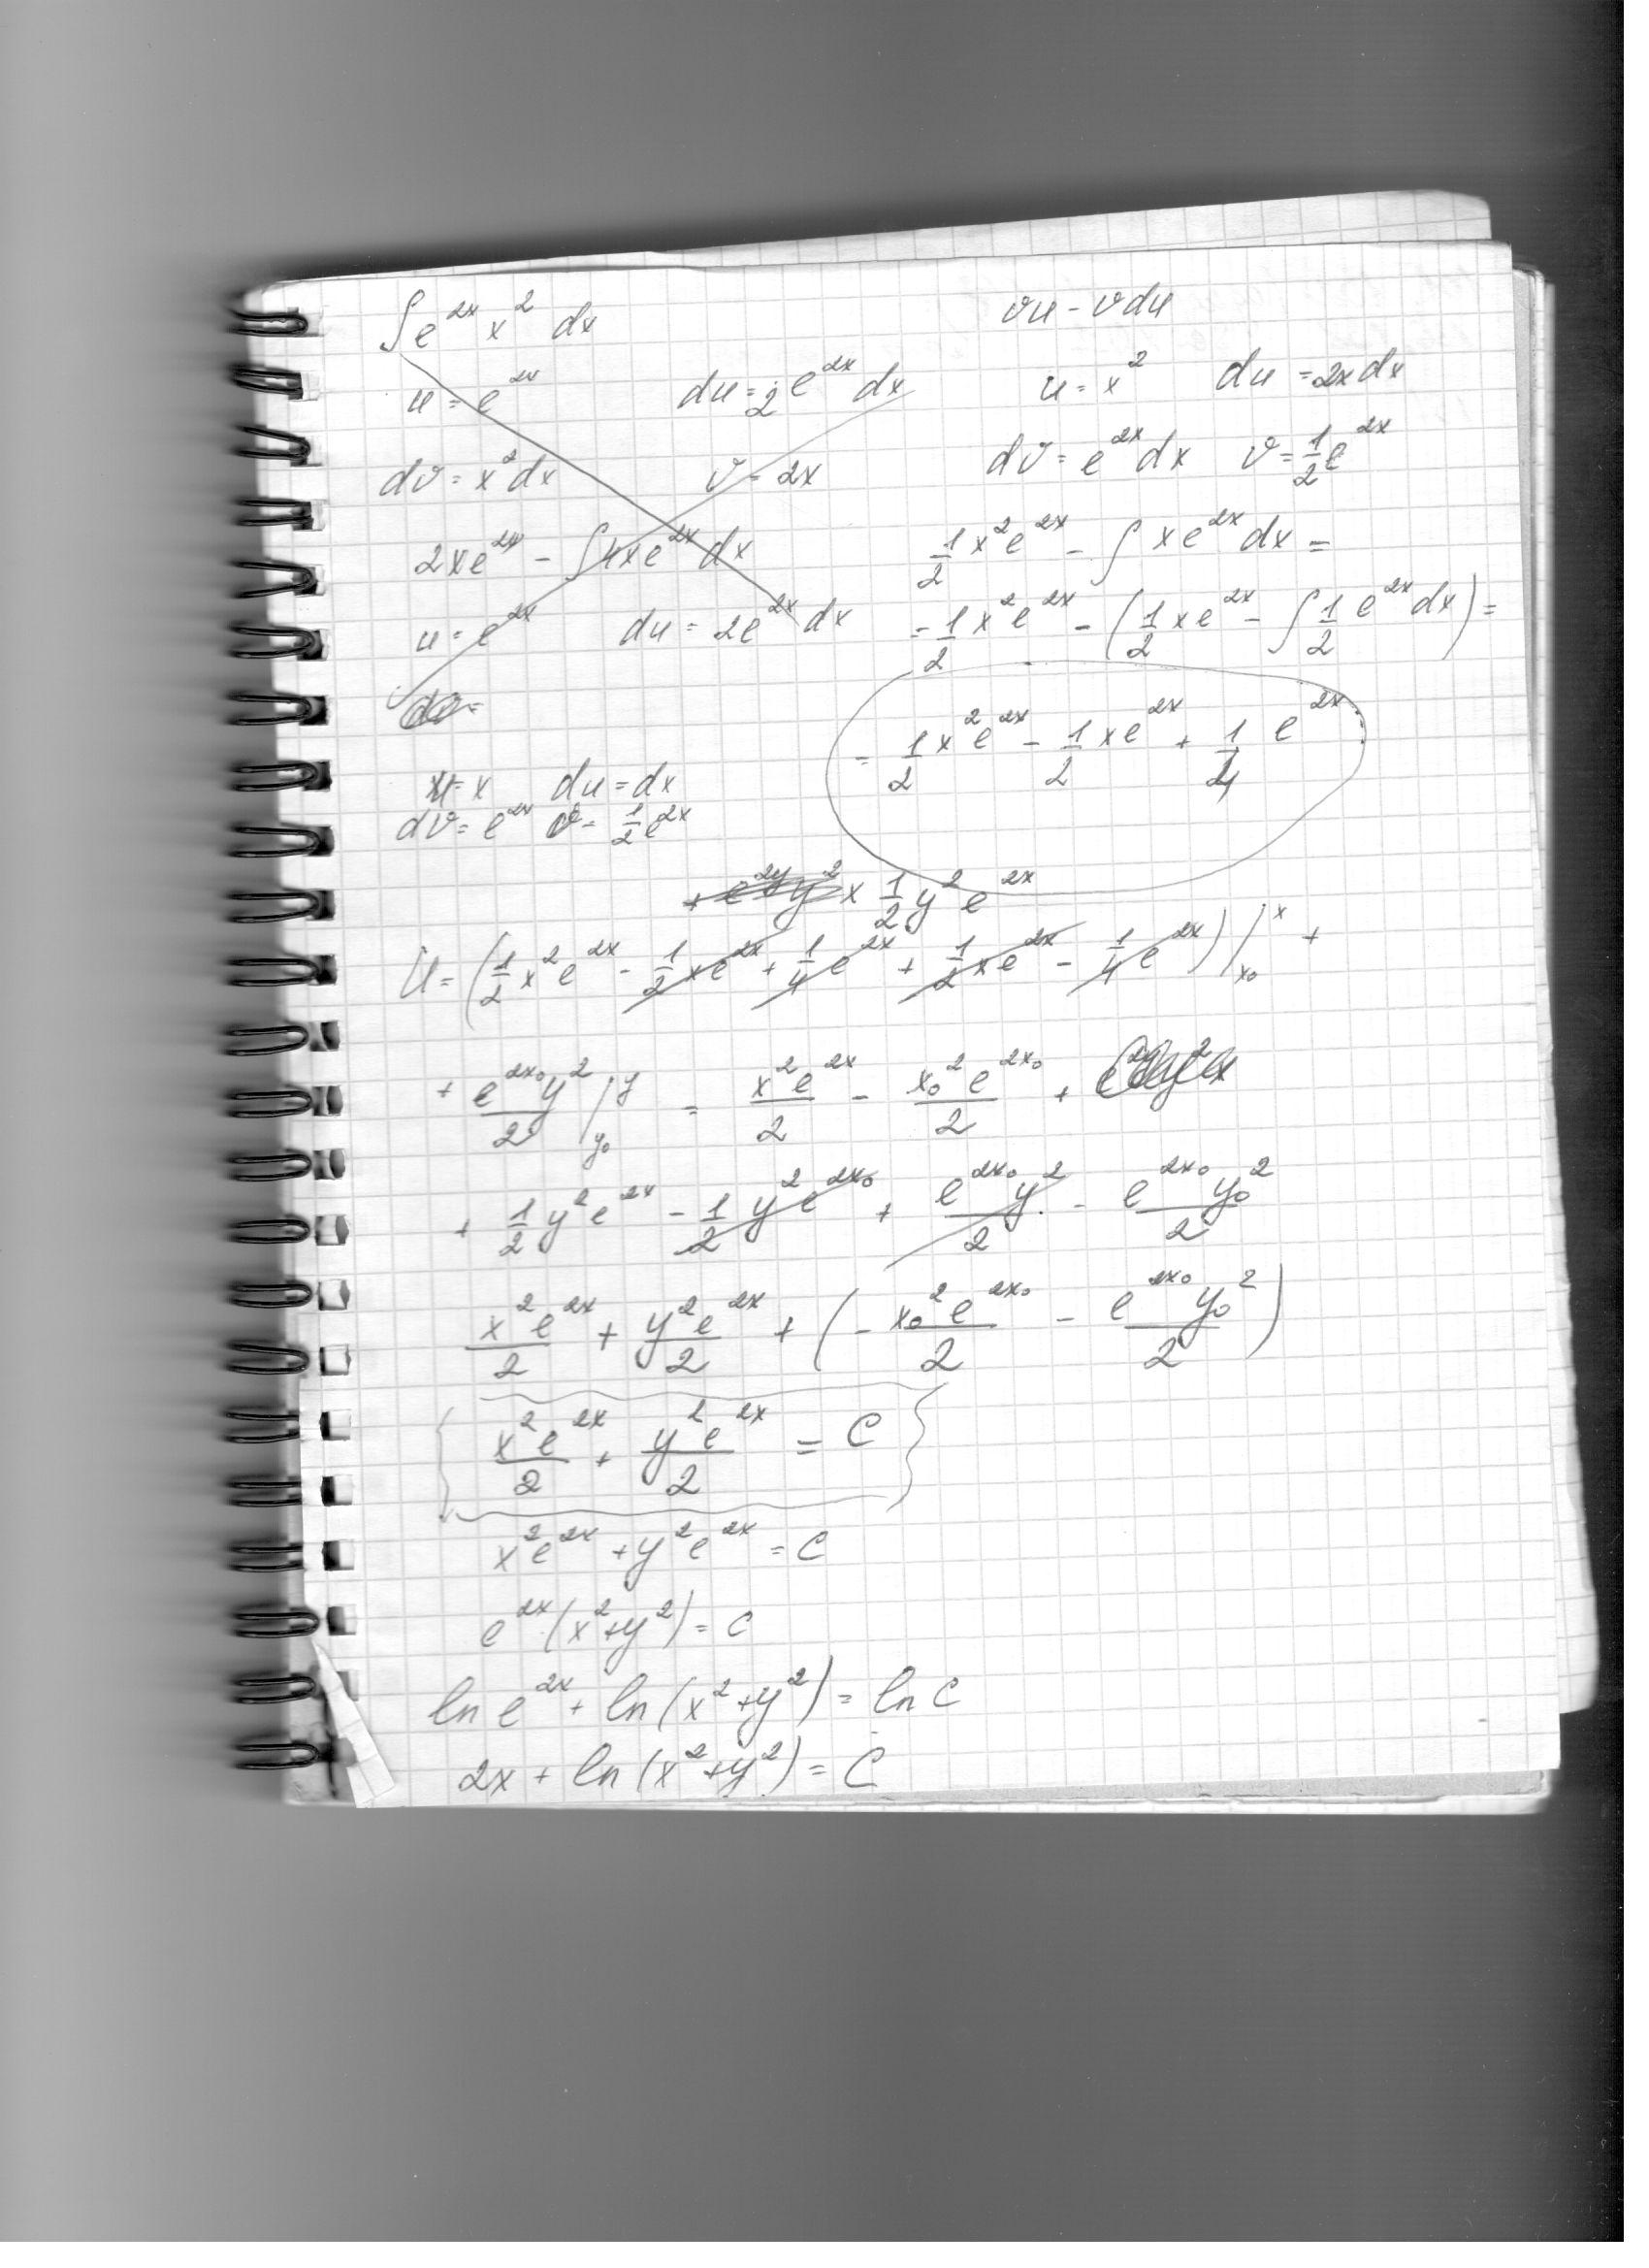 ∫ e^{2x} x^2 dx
u = e^{2x} du = 2 e^{2x} dx
dv = x^2 dx v = 2x
2xe^{2x} - ∫ 4xe^{2x} dx
u = e^{2x} du = 2e^{2x} dx
dv =
u = x du = dx
dv = e^{2x} v = \frac{1}{2} e^{2x}
vu - vdu
u = x^2 du = 2x dx
dv = e^{2x} dx v = \frac{1}{2} e^{2x}
\frac{1}{2} x^2 e^{2x} - ∫ x e^{2x} dx =
= \frac{1}{2} x^2 e^{2x} - (\frac{1}{2} x e^{2x} - ∫ \frac{1}{2} e^{2x} dx) =
= \frac{1}{2} x^2 e^{2x} - \frac{1}{2} x e^{2x} + \frac{1}{4} e^{2x}
+ e^{2y} y^2 x \frac{1}{2} y^2 e^{2x}
U = (\frac{1}{2} x^2 e^{2x} - \frac{1}{2} x e^{2x} + \frac{1}{4} e^{2x} + \frac{1}{2} x e^{2x} - \frac{1}{4} e^{2x}) |_{x_0}^{x} +
+ \frac{e^{2x_0} y^2}{2} |_{y_0}^{y} = \frac{x^2 e^{2x}}{2} - \frac{x_0^2 e^{2x_0}}{2} +
+ \frac{1}{2} y^2 e^{2x} - \frac{1}{2} y^2 e^{2x_0} + \frac{e^{2x_0} y^2}{2} - \frac{e^{2x_0} y_0^2}{2}
\frac{x^2 e^{2x}}{2} + \frac{y^2 e^{2x}}{2} + (- \frac{x_0^2 e^{2x_0}}{2} - \frac{e^{2x_0} y_0^2}{2})
\frac{x^2 e^{2x}}{2} + \frac{y^2 e^{2x}}{2} = C
x^2 e^{2x} + y^2 e^{2x} = C
e^{2x} (x^2 + y^2) = C
ln e^{2x} + ln (x^2 + y^2) = ln C
2x + ln (x^2 + y^2) = C